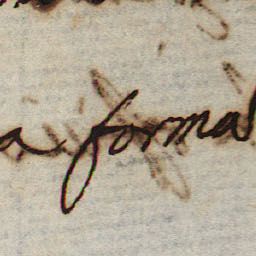 a forma